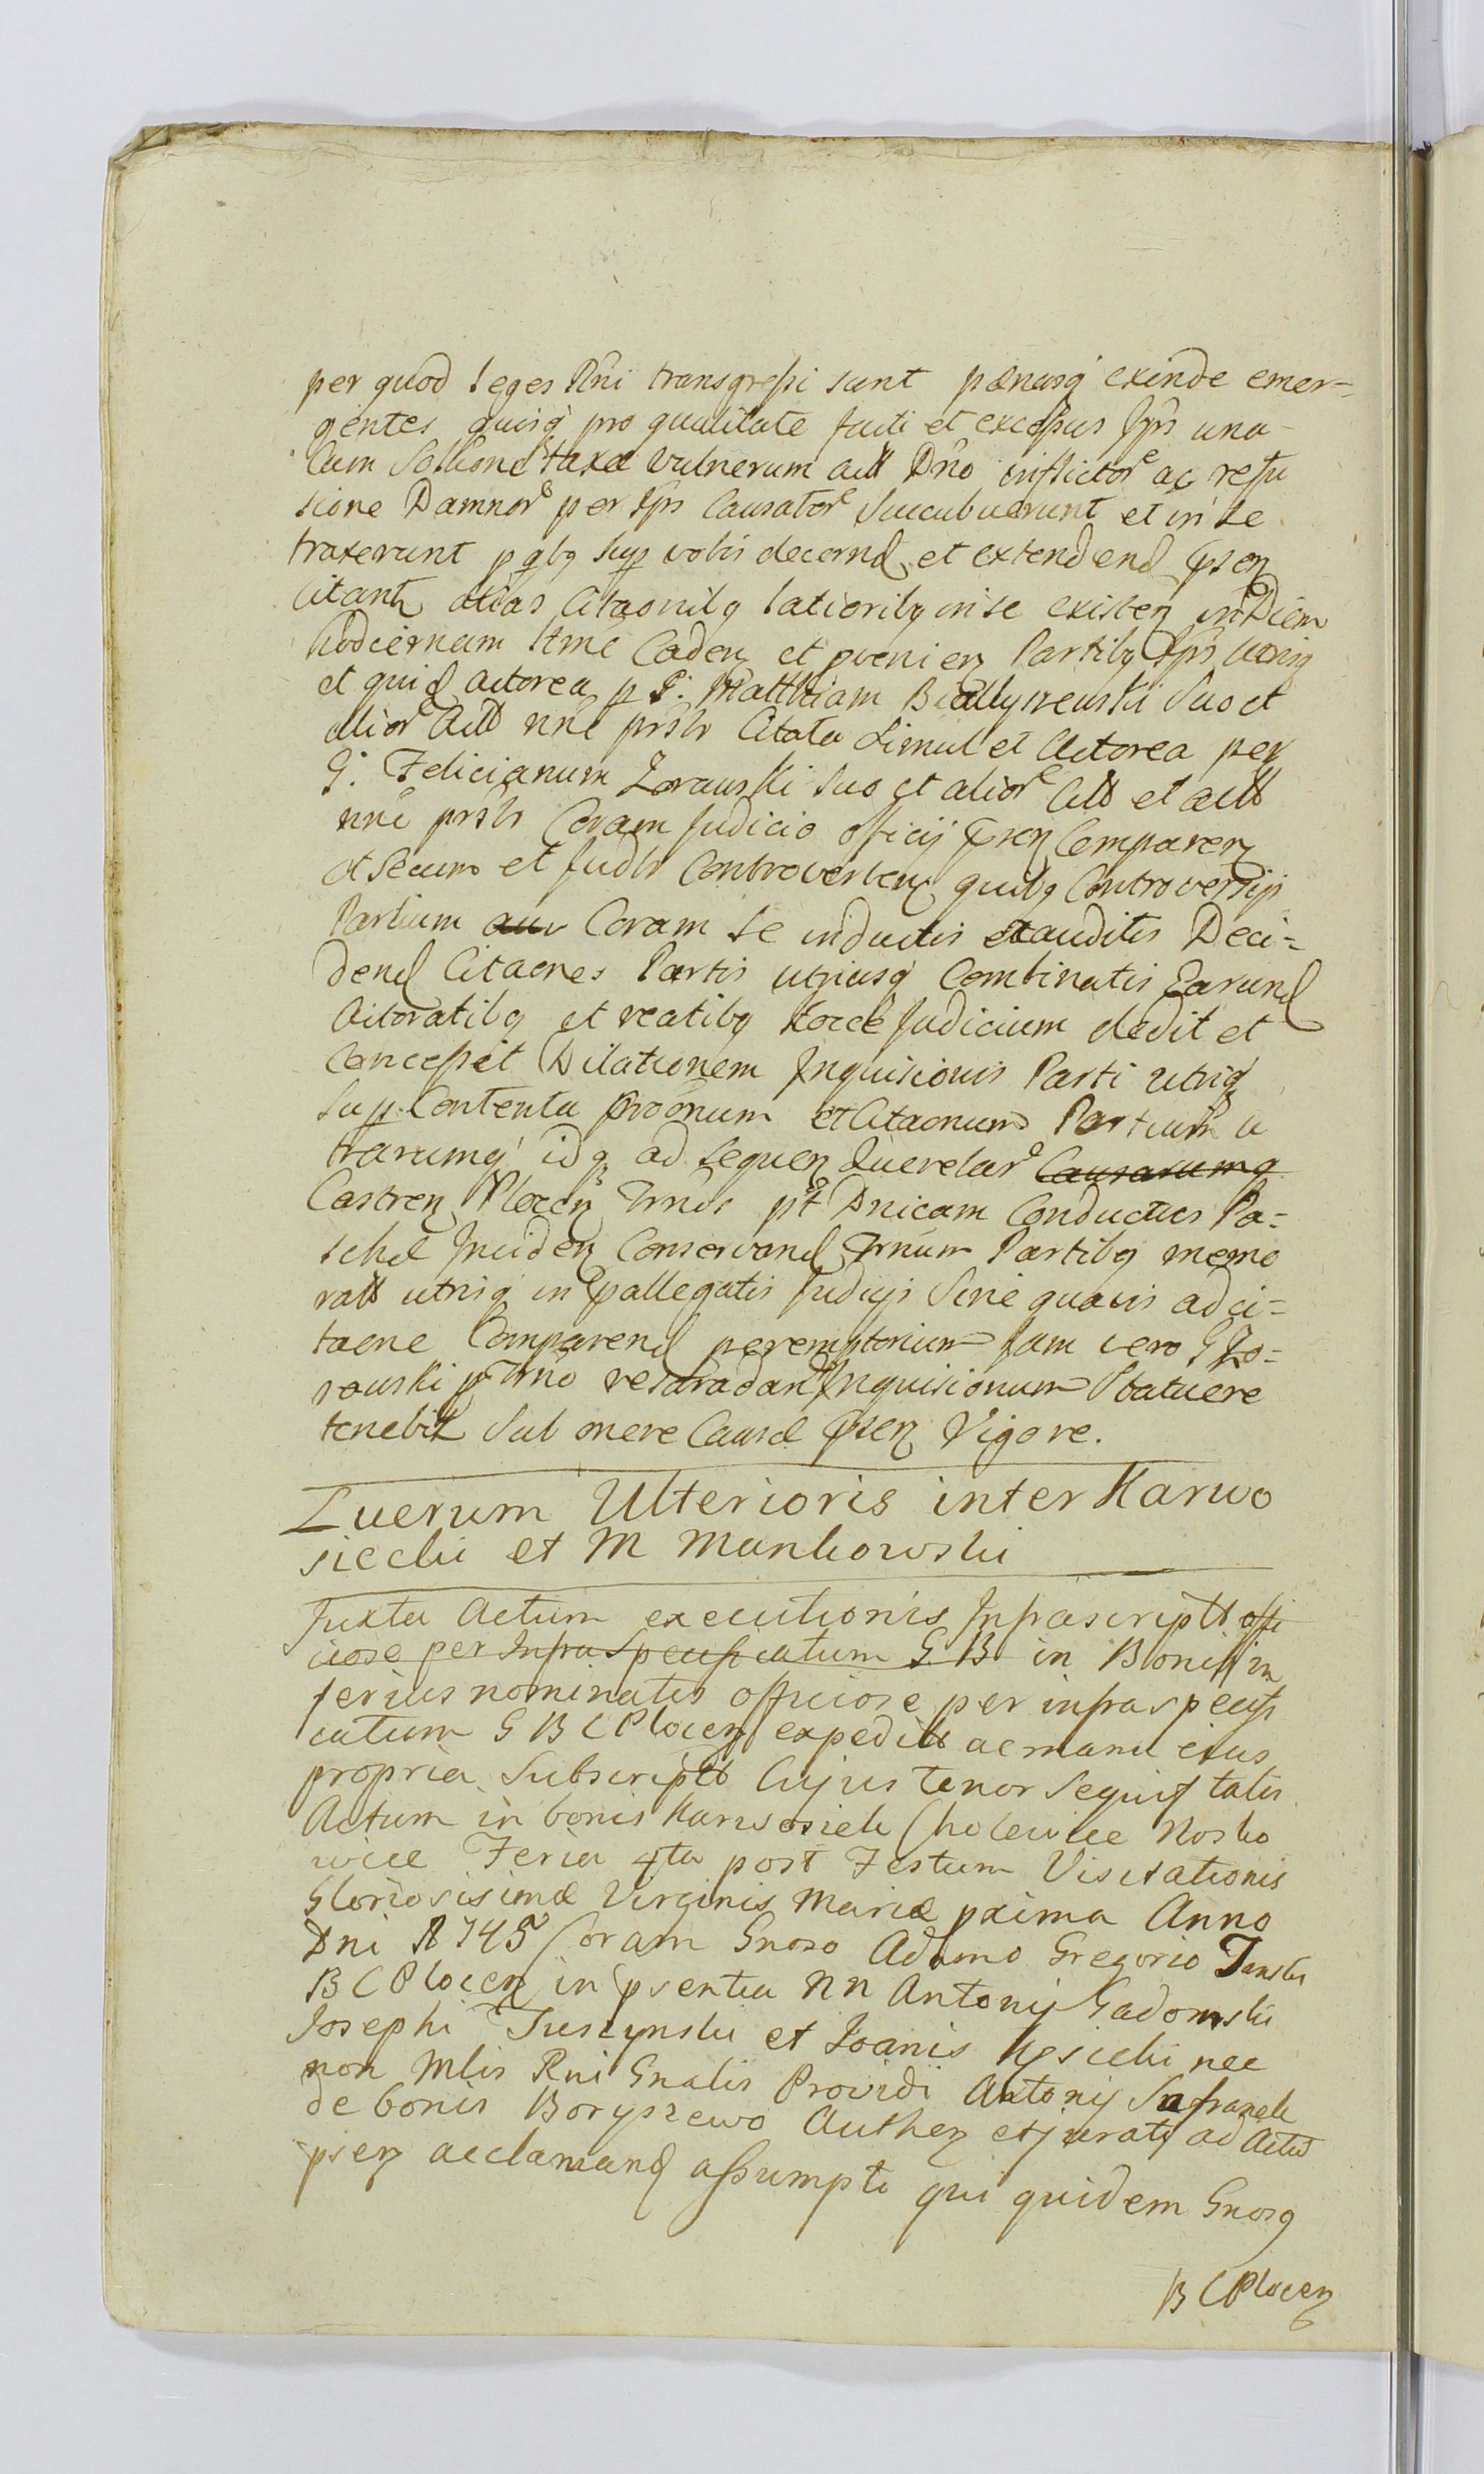 per quod leges Rni transgressi sunt pænasq exinde emer=
gentes quisq pro qualitate facti et excessus Ips una
cum Soluone taxæ vulnerum act Dno inflictor ac refu
sione Damnor per Ips Causator Succubuerunt et in se
traxerunt p qbq sup vobis decernd et extendend psen
citant alias Citaonibq latioribq in se existen in Diem
hodiernam tme Caden et pvenien Partibq Ips utrisq
et quid actorea p G. Matthiam Biallyszewski Suo et
alior Actt nne prsbs Citata Simul et Actorea per
G. Felicianum Zorawski Suo et alior Citt et actt
nne prsbs Coram Judicio officij psen Comparen
et Secum et Judlr Controverten quibq Controversijs
Partium Coram se inductis et auditis Deci=
dend Citaones Partis utriusq Combinatis Earund
Actoratibq et reatibq Hocce Judicium dedit et
Concessit Dilationem Inquisitionis Parti utriq
Sup Contenta prooonum et Citaonum Partium u
trarumq idq ad Sequen Querelar Causarumq
Castren Plocen Trnos pt Dnicam Conductus Pa=
schæ Inciden Conservand Trnum Partibq memo
ratt utrisq in pallegatis Judicijs Sine quavis adci=
taone Comparend peremptorium Jam vero G Zo=
rawski p Trno Inquisitionum Statuere
tenebit Sub onere Causæ psen Vigore.
Lucrum Ulterioris inter Karwo
siecki et M Mankowski
Juxta Actum executionis Infrascriptt offi
ciose per Infra Specificatum G B in Bonis in
ferius nominatis officiose per infra specifi
catum G B C Plocen expeditt ac manu eius
propria Subscriptt Cujus tenor Sequit talis
Actum in bonis Karwosieki Cholewice Nosko
wice Feria 4ta post Festum Visitationis
Gloriosissimæ Virginis Mariæ proxima Anno
Dni 1745 Coram Gnoso Adamo Gregorio Janski
B C Plocen in psentia NN Antonij Gadomski
Josephi Tuszynski et Joanis nec
non Mlis Rni Gnalis Providi Antonij Safranek
de bonis Boryszewo Authen et jurati ad Actum
psen acclamand assumpti qui quidem Gnosq
B C Plocen